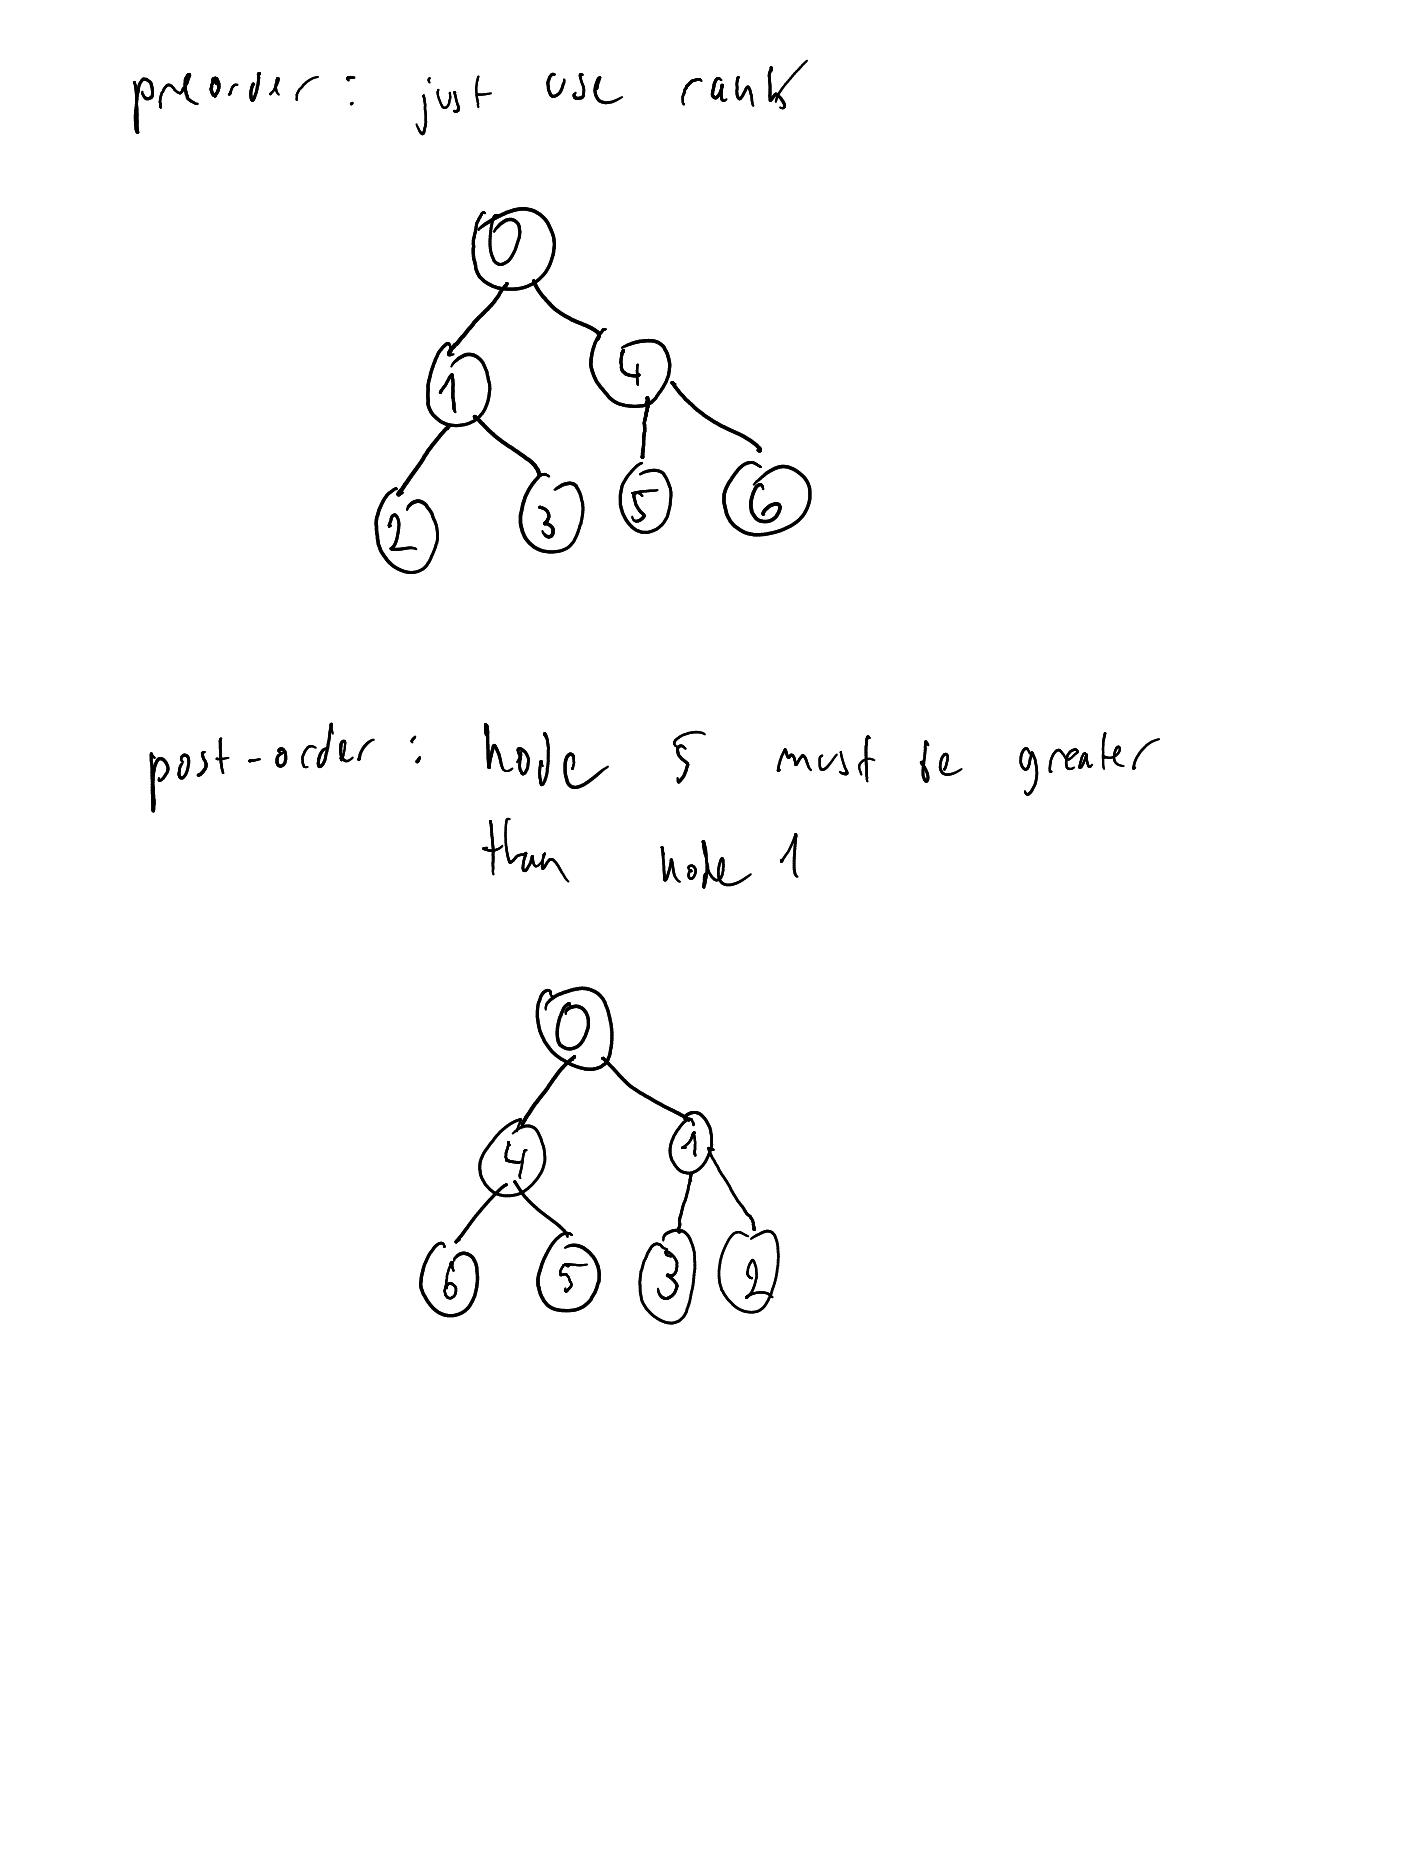 preorder: just use rank
0
1 4
2 3 5 6
post-order: node 5 must be greater
than node 1
0
4 1
6 5 3 2